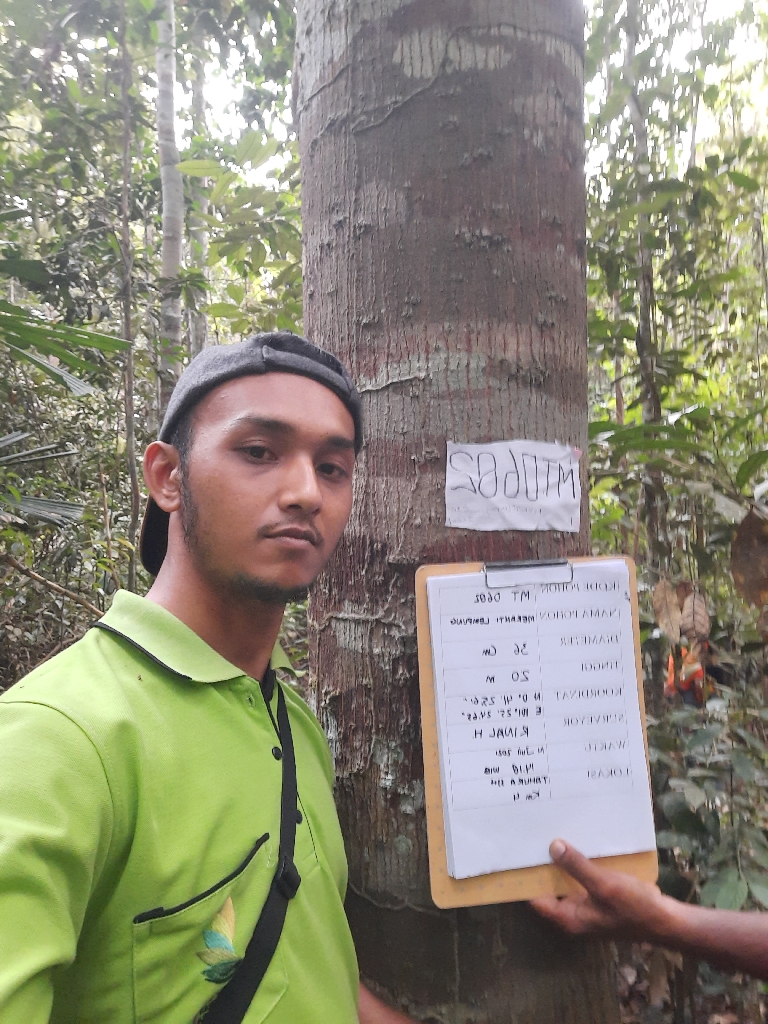 MT0682
KODE POHON MT 0682
NAMA POHON MERANTI LEMPUNG
DIAMETER 36 Cm
TINGGI 20 m
KOORDINAT N 0. 41. 25.6"
E 101. 25. 24.65"
SURVEYOR RINAL H
WAKTU 11 Juli 2021
14.18 WIB
LOKASI TAHURA SSH
Km 4